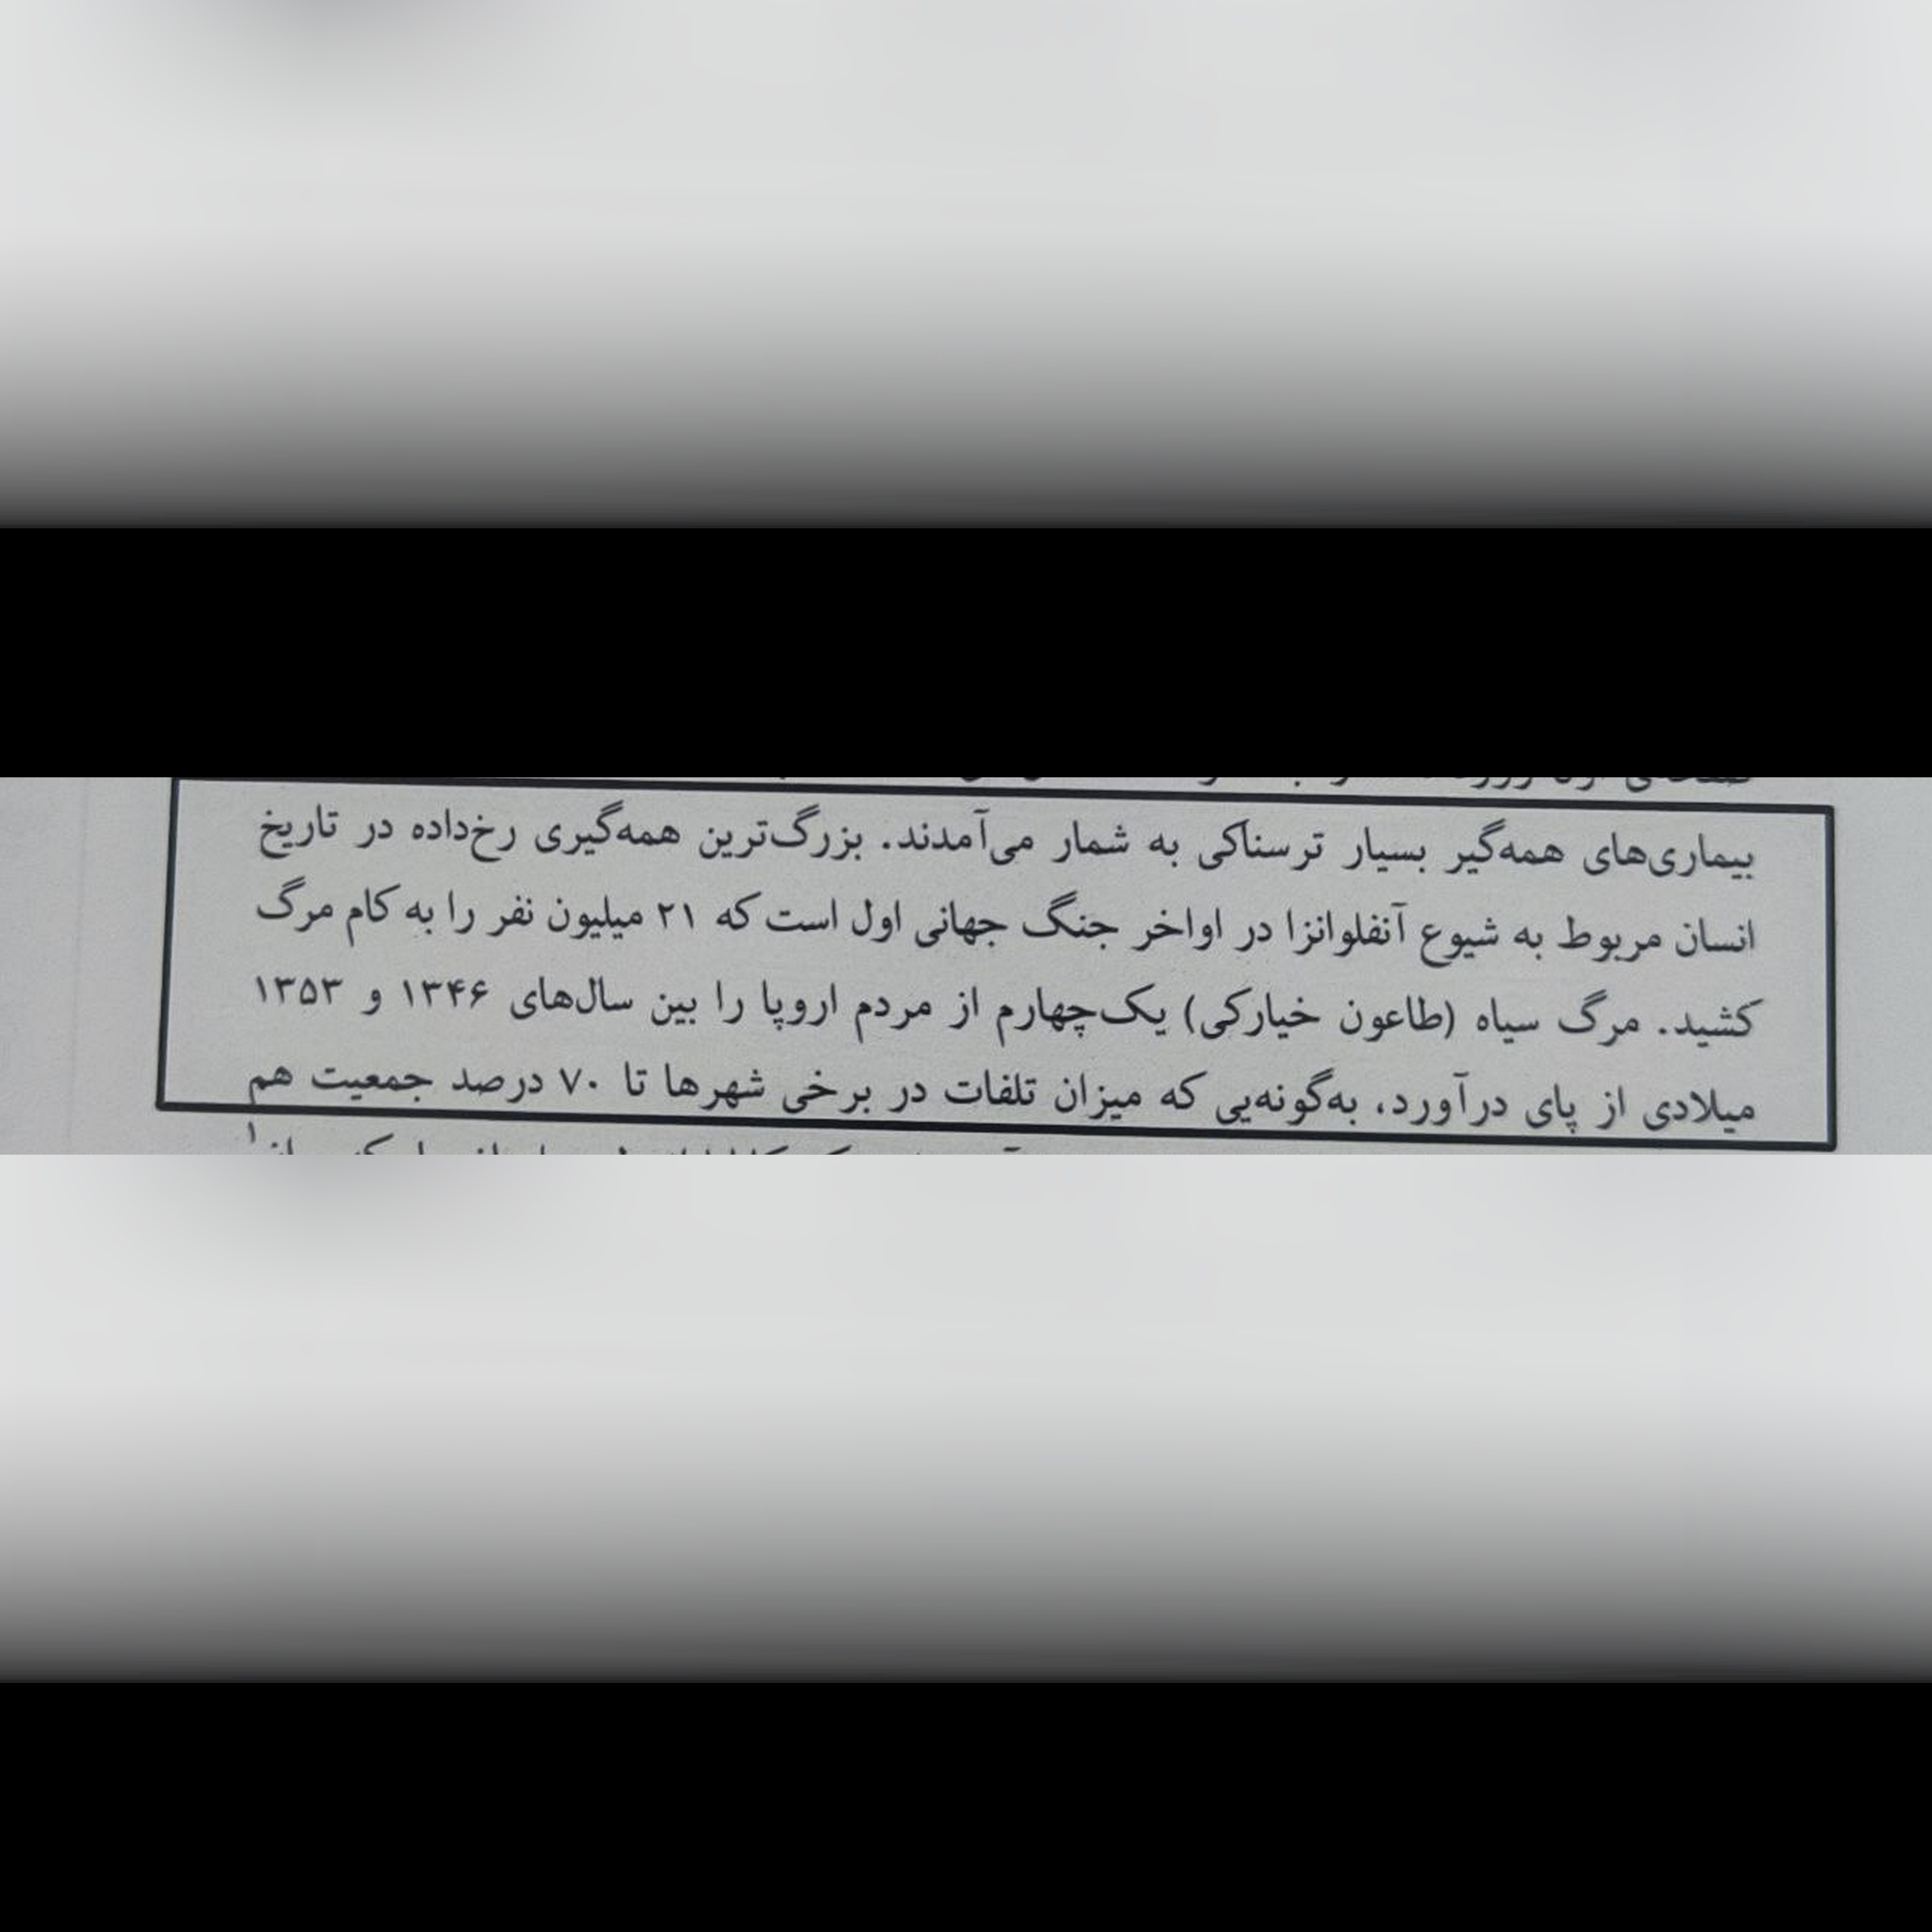 بیماری‌های همه‌گیر بسیار ترسناکی به شمار می‌آمدند. بزرگ‌ترین همه‌گیری رخ‌داده در تاریخ
انسان مربوط به شیوع آنفلوانزا در اواخر جنگ جهانی اول است که ۲۱ میلیون نفر را به کام مرگ
کشید. مرگ سیاه (طاعون خیارکی) یک‌چهارم از مردم اروپا را بین سال‌های ۱۳۴۶ و ۱۳۵۳
میلادی از پای درآورد، به‌گونه‌یی که میزان تلفات در برخی شهرها تا ۷۰ درصد جمعیت هم